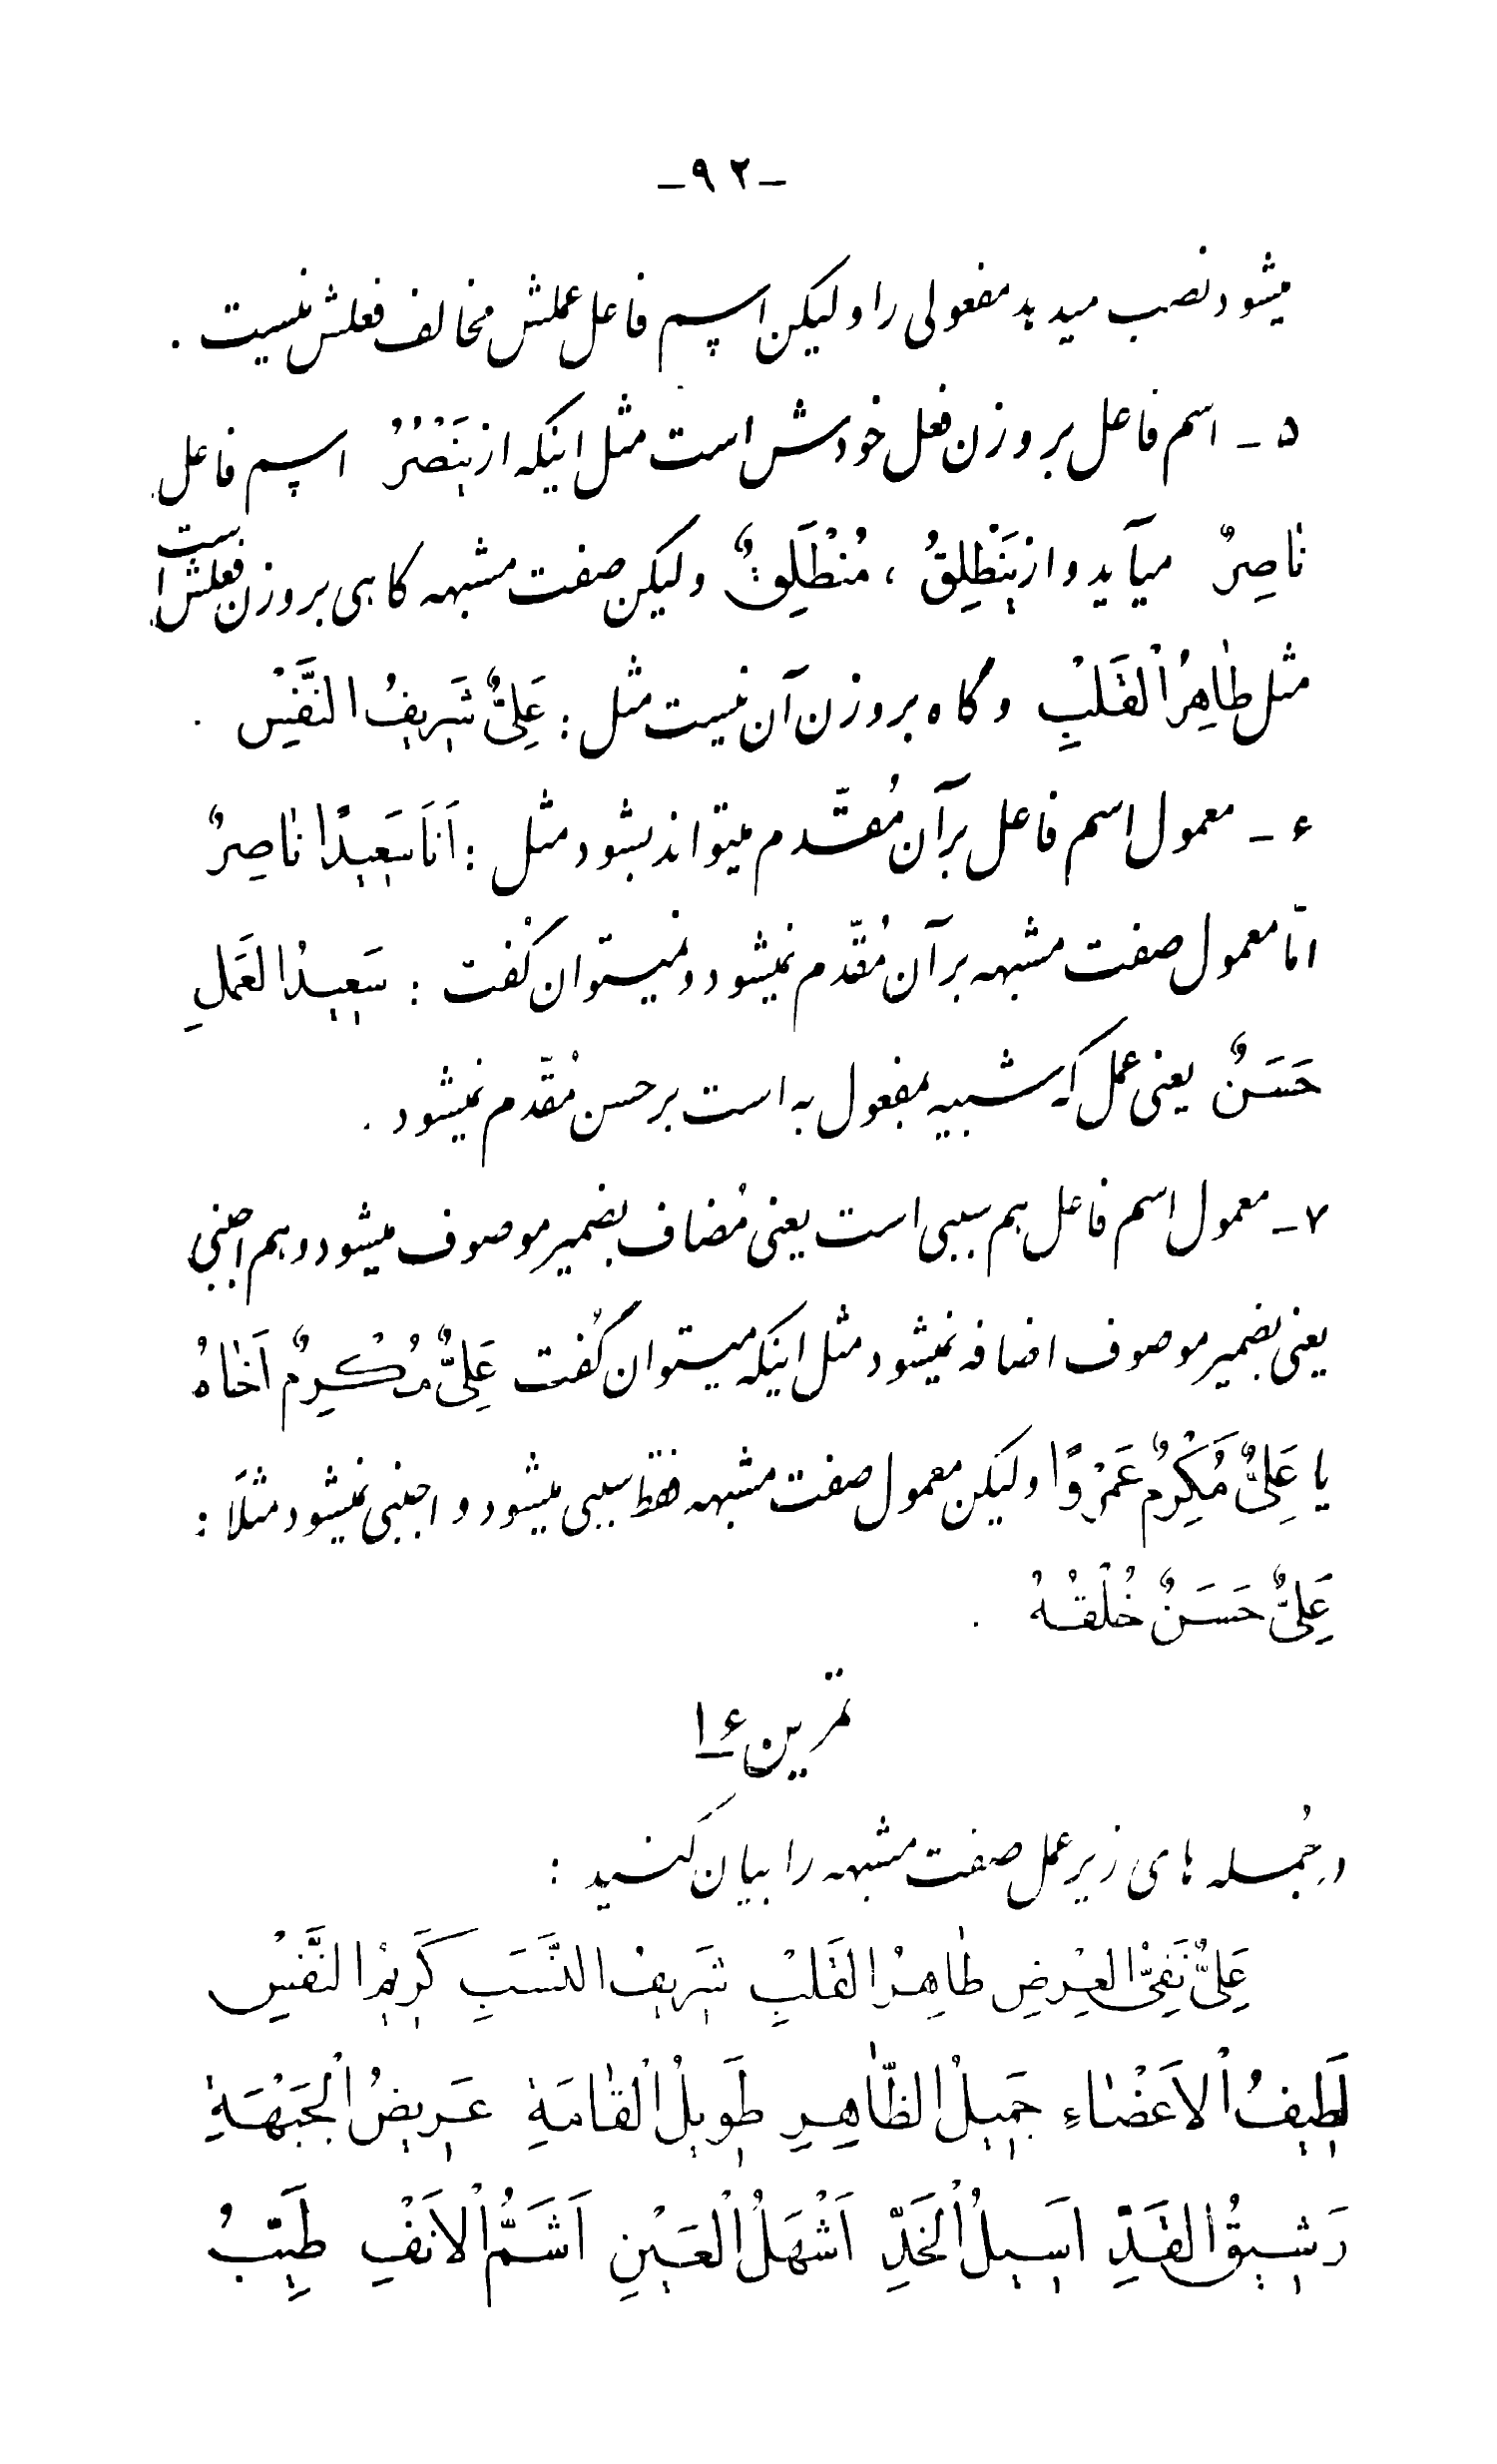 -۹۲-
میشود نصب میدهد مفعولی را ولیکن اسم فاعل عملش مخالف فعلش نیست .
۵ - اسم فاعل بر وزن فعل خودش است مثل اینکه از یَنْصُرُ اسم فاعل
نٰاصِرٌ میآید و از یَنْطَلِقُ ، مُنْطَلِقٌ ولیکن صفت مشبهه گاهی بر وزن فعلش است
مثل طٰاهِرُ الْقَلْبِ و گاه بر وزن آن نیست مثل : عَلِیٌّ شَرِیفُ النَّفْسِ .
۶ - معمول اسم فاعل بر آن مُقدّم میتواند بشود مثل : اَنَا سَعِیدًا نٰاصِرٌ
امّا معمول صفت مشبهه بر آن مُقدّم نمیشود و نمیتوان گفت : سَعِیدُ الْعَمَلِ
حَسَنٌ یعنی عمل که شبیه بمفعول به است بر حسن مُقدّم نمیشود .
۷ - معمول اسم فاعل هم سببی است یعنی مُضاف بضمیر موصوف میشود و هم اجنبی
یعنی بضمیر موصوف اضافه نمیشود مثل اینکه میتوان گُفت عَلِیٌّ مُکْرِمٌ اَخٰاهُ
یا عَلِیٌّ مُکْرِمٌ عَمْرًوا ولیکن معمول صفت مشبهه فقط سببی میشود و اجنبی نمیشود مثلاً :
عَلِیٌّ حَسَنٌ خُلْقُهُ .
تمرین ۱۶
در جُمله های زیر عمل صفت مشبهه را بیان کنید :
عَلِیٌّ نَقِیُّ الْعِرْضِ طٰاهِرُ الْقَلْبِ شَرِیفُ النَّسَبِ کَرِیمُ النَّفْسِ
لَطِیفُ الْاَعْضٰاءِ جَمِیلُ الظّٰاهِرِ طَوِیلُ الْقٰامَةِ عَرِیضُ الْجَبْهَةِ
رَشِیقُ الْقَدِّ اَسِیلُ الْخَدِّ اَشْهَلُ الْعَیْنِ اَشَمُّ الْاَنْفِ طَیِّبُ